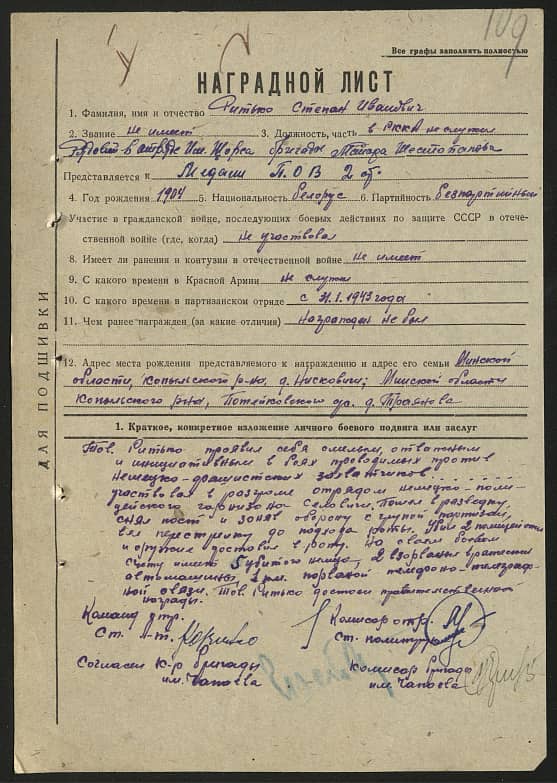 109
Все графы заполнять полностью
НАГРАДНОЙ ЛИСТ
1. Фамилия, имя и отчество Ритько Степан Иванович
2. Звание не имеет 3. Должность, часть в РККА не служил
Рядовой в отряде им. Щорса бригады
Представляется к Медали П.О.В 2 ст.
4. Год рождения 1904 5. Национальность белорус 6. Партийность беспартийный
Участие в гражданской войне, последующих боевых действиях по защите СССР в отече-
ственной войне (где, когда) не участвовал
8. Имеет ли ранения и контузии в отечественной войне не имеет
9. С какого времени в Красной Армии не служил
10. С какого времени в партизанском отряде с 31.1.1943 года
11. Чем ранее награжден (за какие отличия) Награжден не был
12. Адрес места рождения представляемого к награждению и адрес его семьи Минской
области, Копыльского р-на, д. Нисковичи; Минской области
Копыльского р-на, Потейковского д. Траянова
1. Краткое, конкретное изложение личного боевого подвига или заслуг
Тов. Ритько проявил себя смелым, отважным
и инициативным в боях проводимых против
немецко-фашистских захватчиков.
участвовал в разгроме отрядом немецко-поли-
цейского гарнизона Селовичи. Пошел в разведку,
снял пост и занял оборону с группой партизан,
вел перестрелку до подхода роты. Убил 2 полицейских
и оружие доставил в роту. На своем боевом
счету имеет 5 убитого немца, 2 взорванных вражеских
автомашины, 2 км. порваной телефоно-телеграф-
ной связи. Тов. Ритько достоин правительственной
награды.
Команд. отр. Комисар отр.
Ст. л-т. Ст. политрук
Согласен к-р бригады Комисар бригады
им. Чапаева им. Чапаева
ДЛЯ ПОДШИВКИ